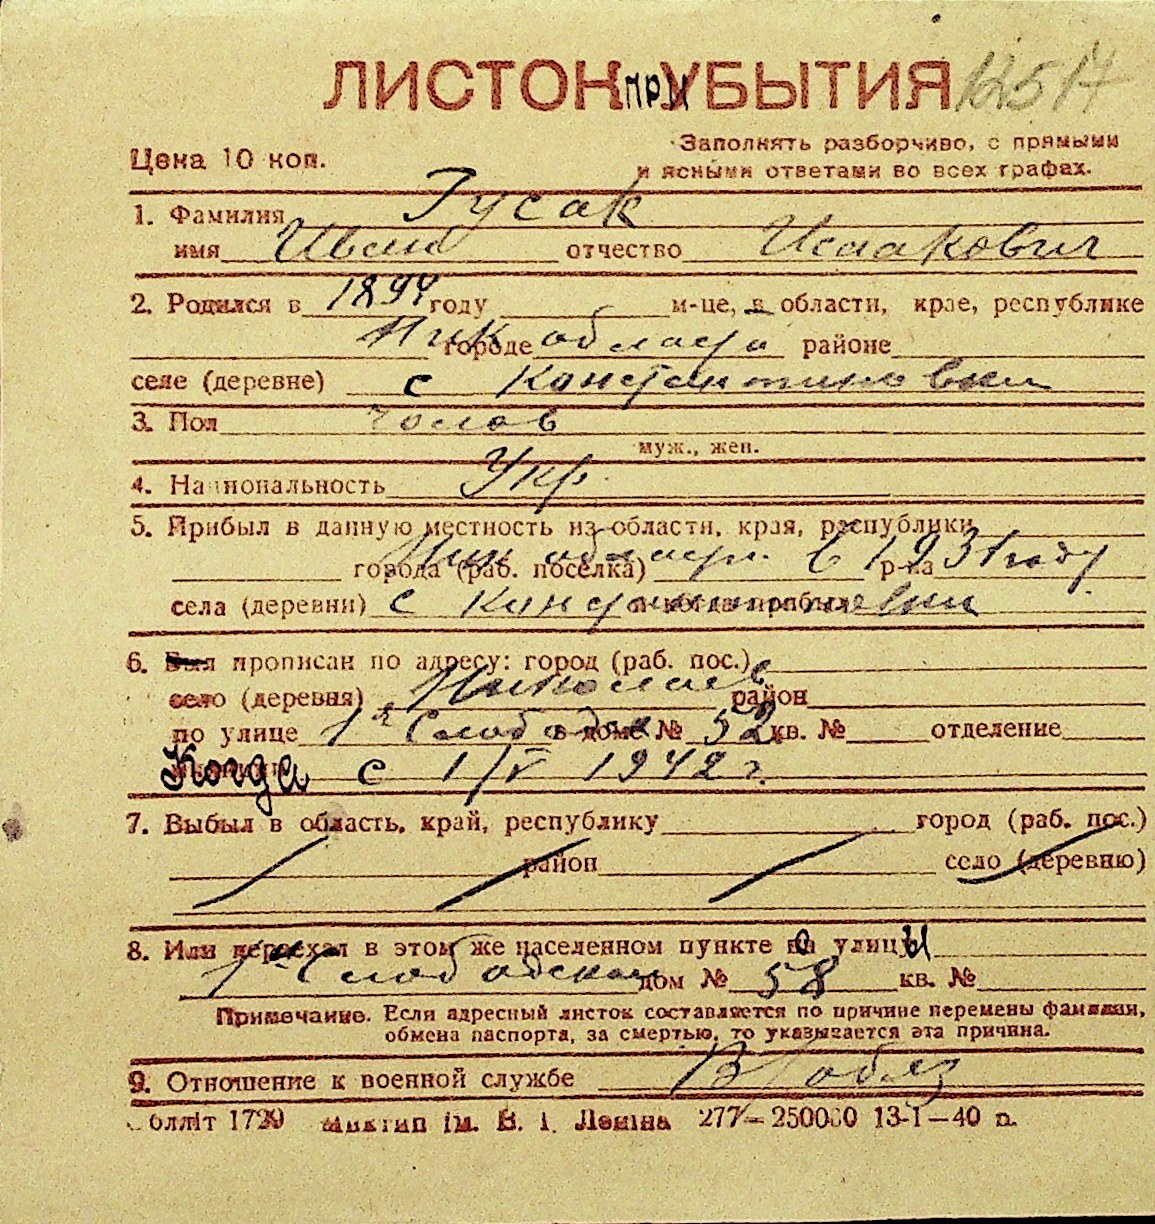 ЛИСТОК ПРИБЫТИЯ 12517
Цена 10 коп.
Заполнять разборчиво, с прямыми
и ясными ответами во всех графах.
1. Фамилия Гусак
имя Иван отчество Исаакович
2. Родился в 1894 году м-це, в области, крае, республике
Ник городе области районе
селе (деревне) с Константиновки
3. Пол чолов
муж., жен.
4. Национальность Укр
5. Прибыл в данную местность из области, края, республики
Ник города (раб. поселка) области в 1931 году р-на
села (деревни) с Константиновки и когда прибыл
6. Был прописан по адресу: город (раб. пос.)
село (деревня) Николаев район
по улице 1я Слободск в доме № 52 кв. № отделение
Когда с 1/V 1942 г.
7. Выбыл в область, край, республику город (раб. пос.)
район село (деревню)
8. Или переехал в этом же населенном пункте на улицу
1я Слободской дом № 58 кв. №
Примечание. Если адресный листок составляется по причине перемены фамилии,
обмена паспорта, за смертью, то указывается эта причина.
9. Отношение к военной службе
Облліт 1729 Миктип ім. В. І. Леніна 277—250000 13-1—40 п.